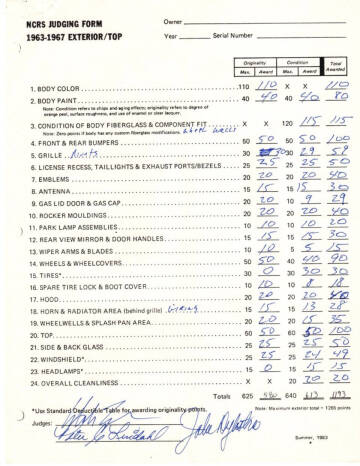 NCRS JUDGING FORM
1963-1967 EXTERIOR/TOP
Owner
Year Serial Number
Originality Condition Total Awarded
Max. Award Max. Award
1. BODY COLOR 110 110 X X 110
2. BODY PAINT 40 40 40 40 80
Note: Condition refers to chips and aging effects; originality refers to degree of
orange peel, surface roughness, and use of enamel or clear lacquer.
3. CONDITION OF BODY FIBERGLASS & COMPONENT FIT X X 120 115 115
Note: Zero points if body has any custom fiberglass modifications.
4. FRONT & REAR BUMPERS 50 50 50 50 100
5. GRILLE 30 30 29 59
6. LICENSE RECESS, TAILLIGHTS & EXHAUST PORTS/BEZELS 25 25 25 25 50
7. EMBLEMS 20 20 20 20 40
8. ANTENNA 15 15 15 15 30
9. GAS LID DOOR & GAS CAP 20 20 10 9 29
10. ROCKER MOULDINGS 20 20 20 20 40
11. PARK LAMP ASSEMBLIES 10 10 10 10 20
12. REAR VIEW MIRROR & DOOR HANDLES 15 15 15 15 30
13. WIPER ARMS & BLADES 10 10 5 15
14. WHEELS & WHEELCOVERS 50 50 40 40 90
15. TIRES* 30 0 30 30 30
16. SPARE TIRE LOCK & BOOT COVER 10 10 8 18
17. HOOD 20 20 20 20 40
18. HORN & RADIATOR AREA (behind grille) wiring 15 15 15 13 28
19. WHEELWELLS & SPLASH PAN AREA 20 20 15 15 35
20. TOP 50 50 50 100
21. SIDE & BACK GLASS 25 25 25 25 50
22. WINDSHIELD* 25 25 25 24 49
23. HEADLAMPS* 15 0 15 15 15
24. OVERALL CLEANLINESS X X 20 20 20
Totals 625 580 640 613 1193
*Use Standard Deductible Table for awarding originality points.
Note: Maximum exterior total = 1265 points
Judges:
Summer, 1983